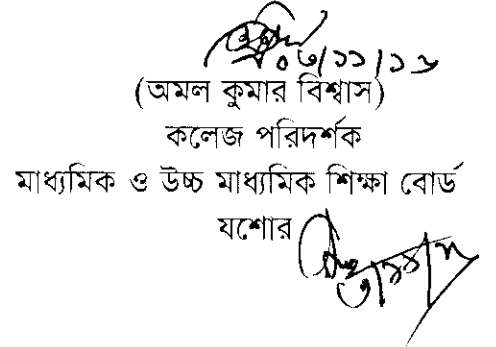 ০৩/১১/১৬
(অমল কুমার বিশ্বাস)
কলেজ পরিদর্শক
মাধ্যমিক ও উচ্চ মাধ্যমিক শিক্ষা বোর্ড
যশোর